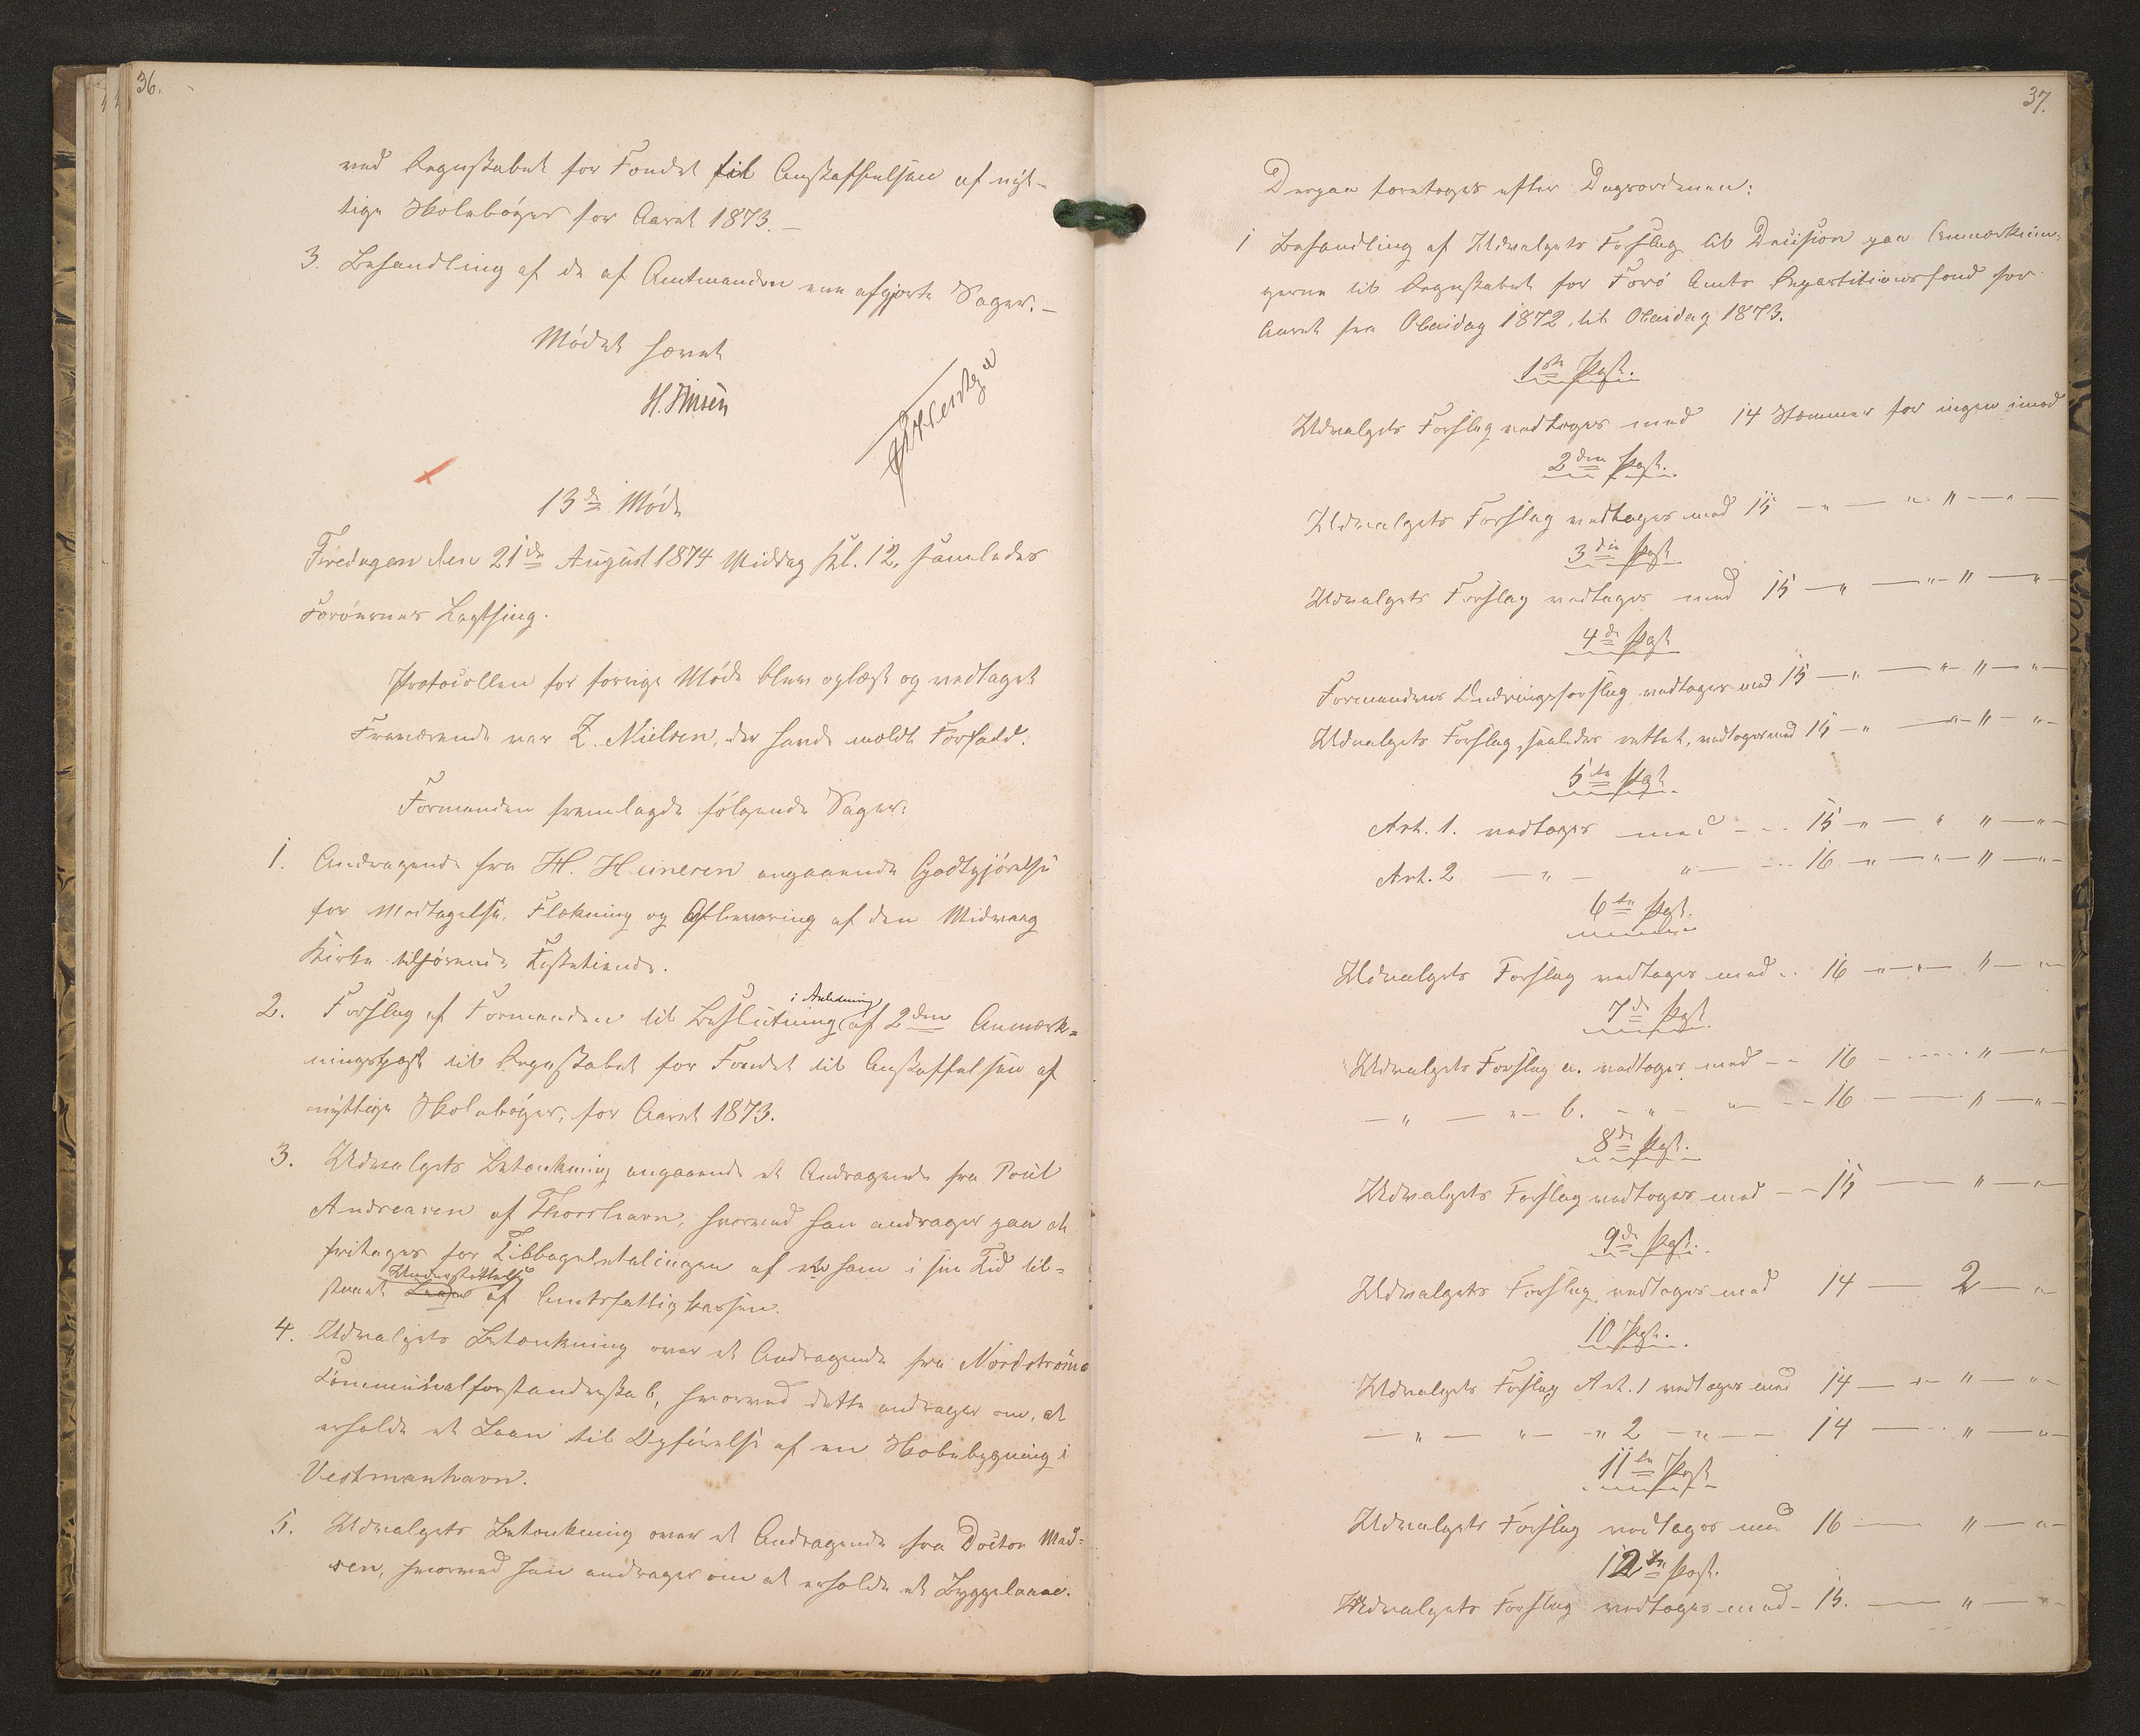 36.
ved Regnskabet for Fondet til Anskaffelsen af nyt-
tige Skolebøger for Aaret 1873. —
3. Behandling af de af Amtmanden ene afgjorte Sager. —
Mødet hævet
13de Møde
Fredagen den 21de August 1874 Middag Kl. 12, samledes
Færøernes Lagthing.
Protocollen for forrige Møde blev oplæst og vedtaget
Fraværende var Z. Nielsen, der havde meldt Forfald.
Formanden fremlagde følgende Sager:
1. Andragende fra H. Heinesen angaaende Godtgjørelse
for Modtagelse, Flækning og Aflevering af den Midvaag
Kirke tilhørende Fisketiende.
2. Forslag af Formanden til Beslutning i Anledning af 2den Anmærk=
ningspost til Regnskabet for Fondet til Anskaffelsen af
nyttige Skolebøger, for Aaret 1873.
3. Udvalgets Betænkning angaaende et Andragende fra Poul
Andreasen af Thorshavn, hvorved han andrager paa at
fritages for Tilbagebetalingen af en ham i sin Tid til=
staaet Understøttelse af Amtsfattigkassen.
4. Udvalgets Betænkning over et Andragende fra Nordstrømø
Communalforstanderskab, hvorved dette andrager om, at
erholde et Laan til Opførelse af en Skolebygning i
Vestmanhavn.
5. Udvalgets Betænkning over et Andragende fra Doctor Mad=
sen, hvorved han andrager om at erholde et Byggelaan.
37.
Derpaa foretoges efter Dagsordenen:
1 Behandling af Udvalgets Forslag til Decision paa Anmærknin=
gerne til Regnskabet for Færø Amts Repartitionsfond for
Aaret fra Olaidag 1872, til Olaidag 1873.
1ste Post.
Udvalgets Forslag vedtoges med 14 Stemmer for ingen imod
2den Post.
Udvalgets Forslag vedtoges med 15 — „ — „ — „ — „ —
3die Post
Udvalgets Forslag vedtoges med 15 — „ — „ — „ — „ —
4de Post
Formandens Ændringsforslag vedtoges med 15 — „ — „ — „ — „ —
Udvalgets Forslag, saaledes rettet, vedtoges med 15 — „ — „ — „ — „ —
5te Post
Art. 1. vedtoges med - - 15 — „ — „ „ — „ —
Art. 2 — „ — „ — - - 16 — „ — „ — „ — „ —
6te Post.
Udvalgets Forslag vedtoges med - - 16 — „ — „ — „ — „ —
7de Post
Udvalgets Forslag a. vedtoges med - - 16 - - - - „ — „ —
— „ — „ — b. - „ - „ — - - 16 — — „ — „ —
8de Post.
Udvalgets Forslag vedtoges med - - 15 — — „ — „ —
9de Post.
Udvalgets Forslag vedtoges med 14 — 2 — „
10 Post.
Udvalgets Forslag Art. 1 vedtoges med 14 — „ — „ — „ —
— „ — „ — „ 2 — „ — 14 — — „ — „ —
11te Post
Udvalgets Forslag vedtoges med 16 — „ — „ —
12te Post.
Udvalgets Forslag vedtoges med - 15. — „ — „ —